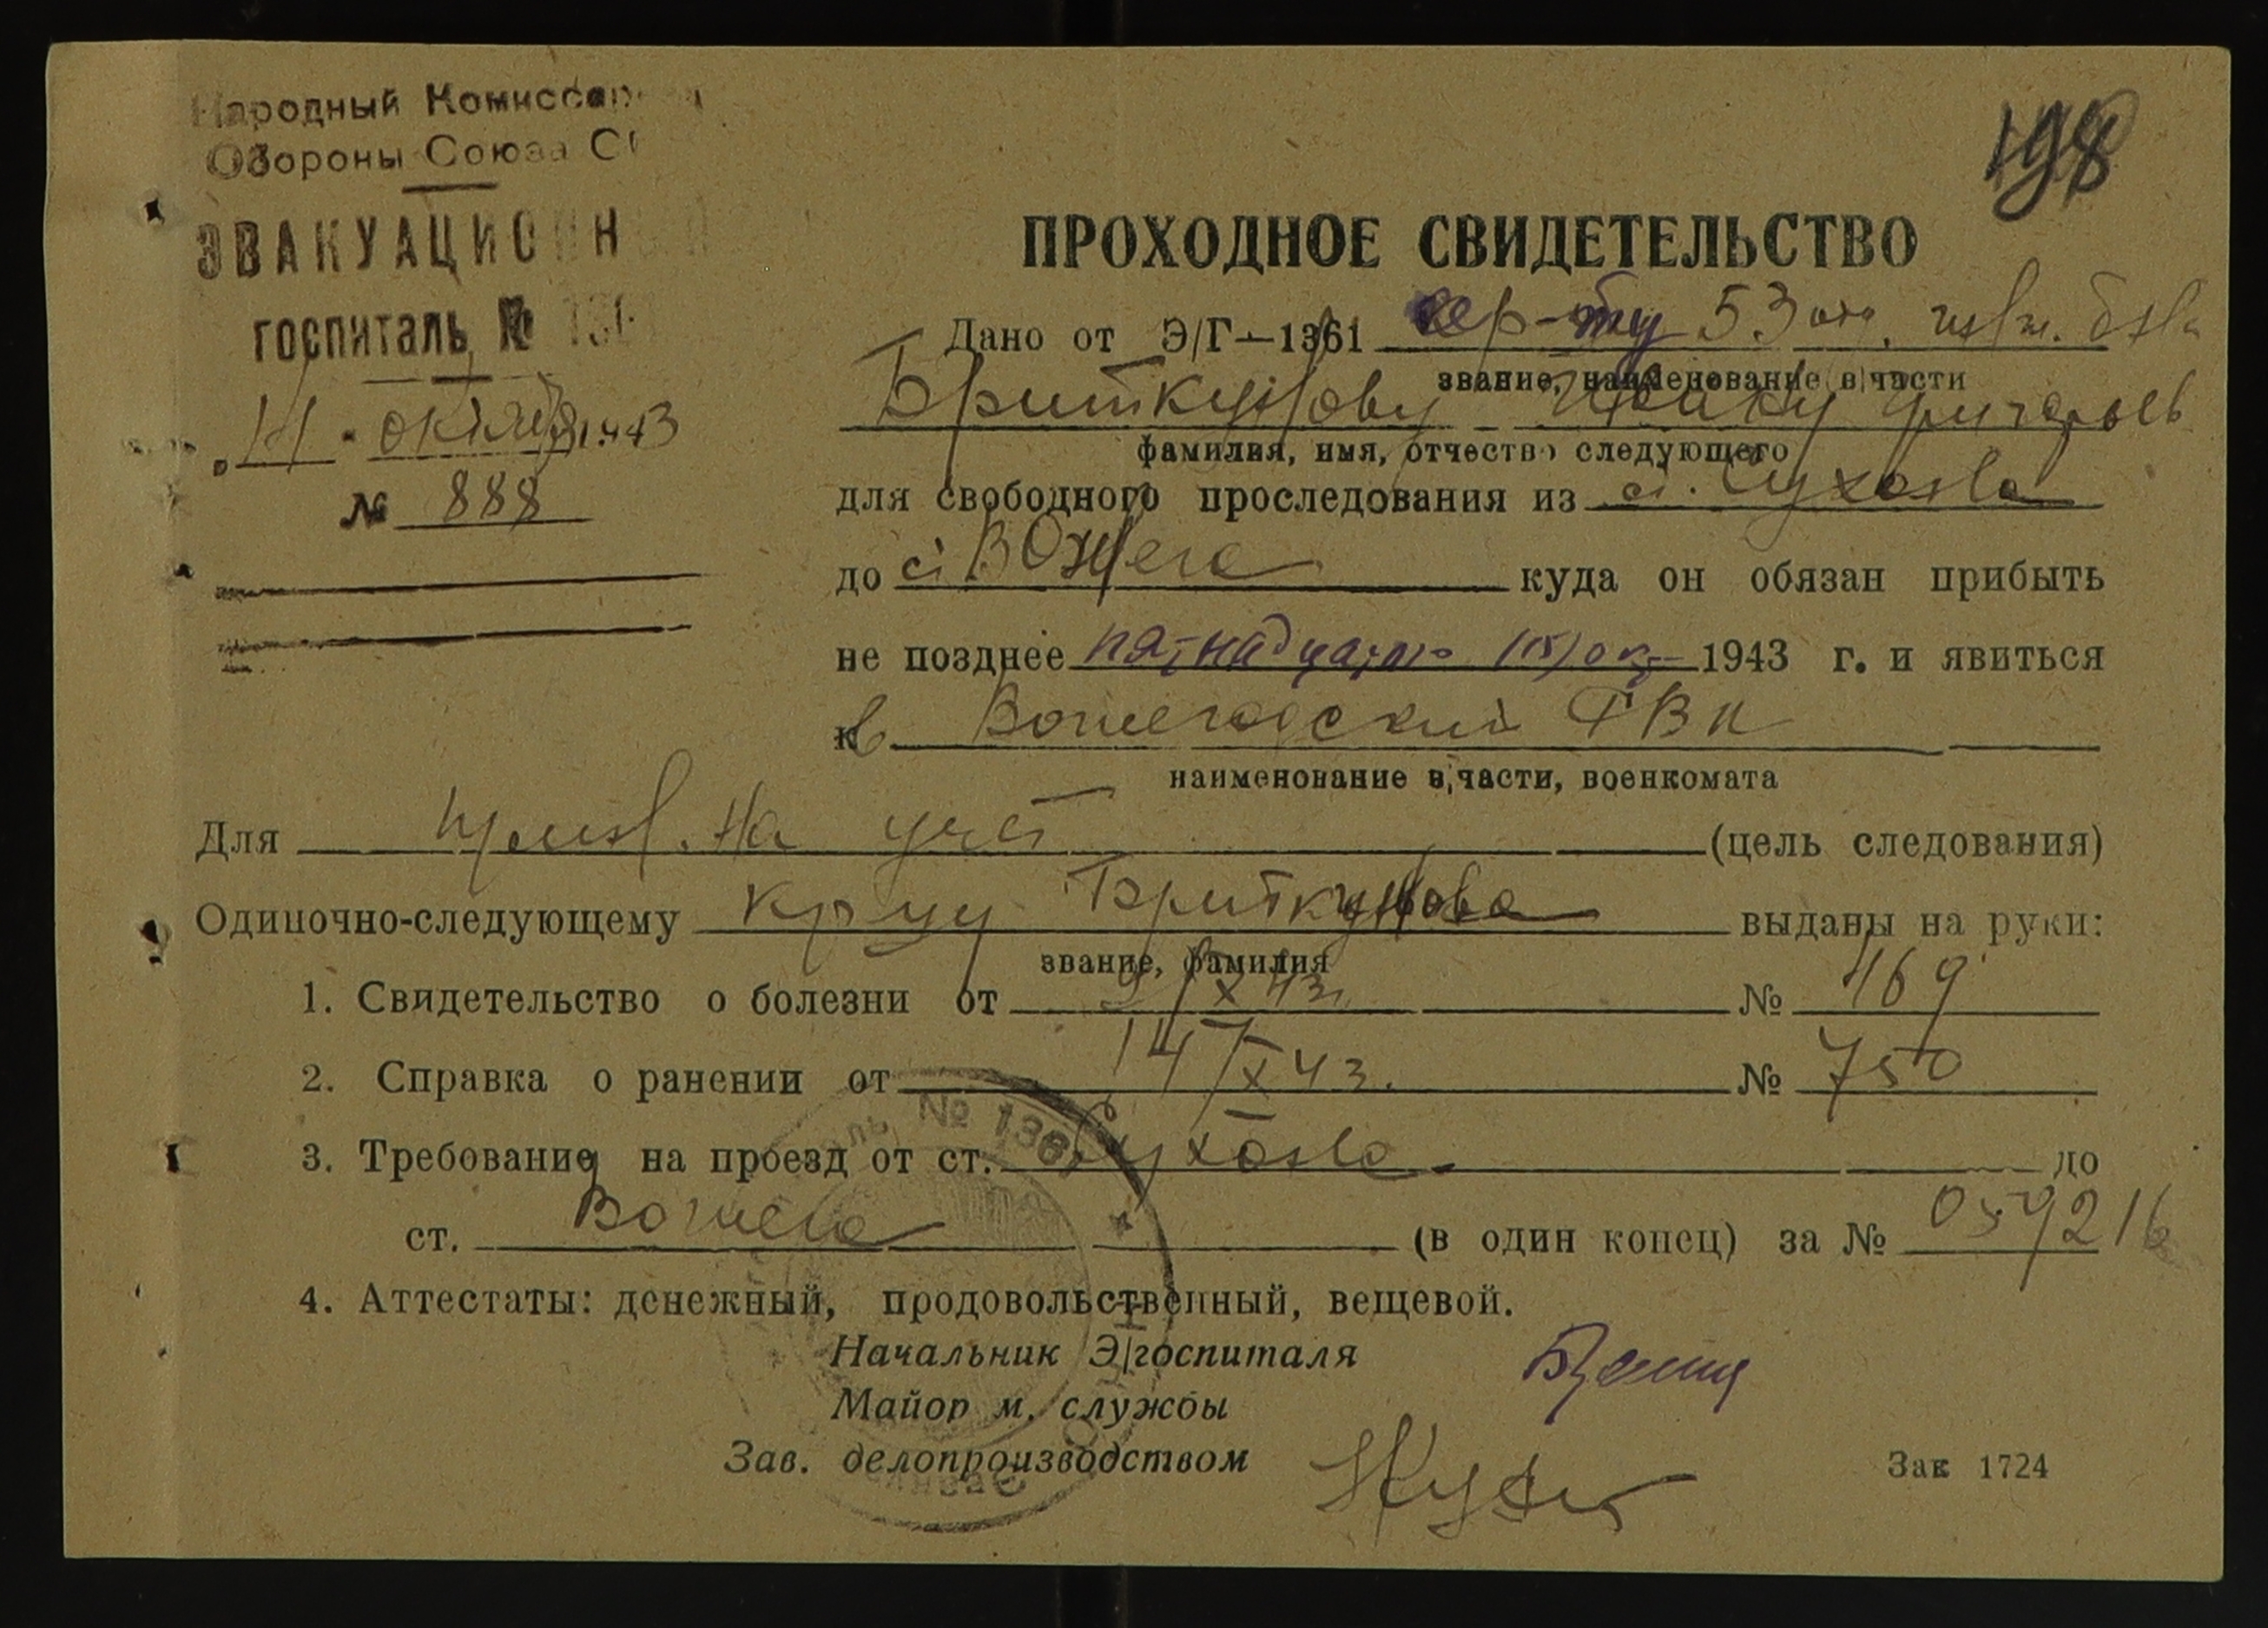 Народный Комиссар
Обороны Союза СС
ЭВАКУАЦИОНН
госпиталь № 136
14 октября 1943
№ 888
198
ПРОХОДНОЕ СВИДЕТЕЛЬСТВО
Дано от Э/Г—1361 53 отд.
звание, наименование в/части
Бритку ову Григорьев
фамилия, имя, отчество следующего
для свободного проследования из ст. Сухона
до ст Вожега куда он обязан прибыть
не позднее пятнадцатого (15) окт 1943 г. и явиться
в Вожегодский РВК
наименование в/части, военкомата
Для на учет (цель следования)
Одиночно-следующему кр-цу выданы на руки:
звание, фамилия
1. Свидетельство о болезни от 9/X 43г. № 469
2. Справка о ранении от 14/X 43. № 750
3. Требование на проезд от ст. Сухона до
ст. Вожега (в один конец) за № 059216
4. Аттестаты: денежный, продовольственный, вещевой.
Начальник Э/госпиталя
Майор м. службы
Зав. делопроизводством
Зак 1724
№ 1361